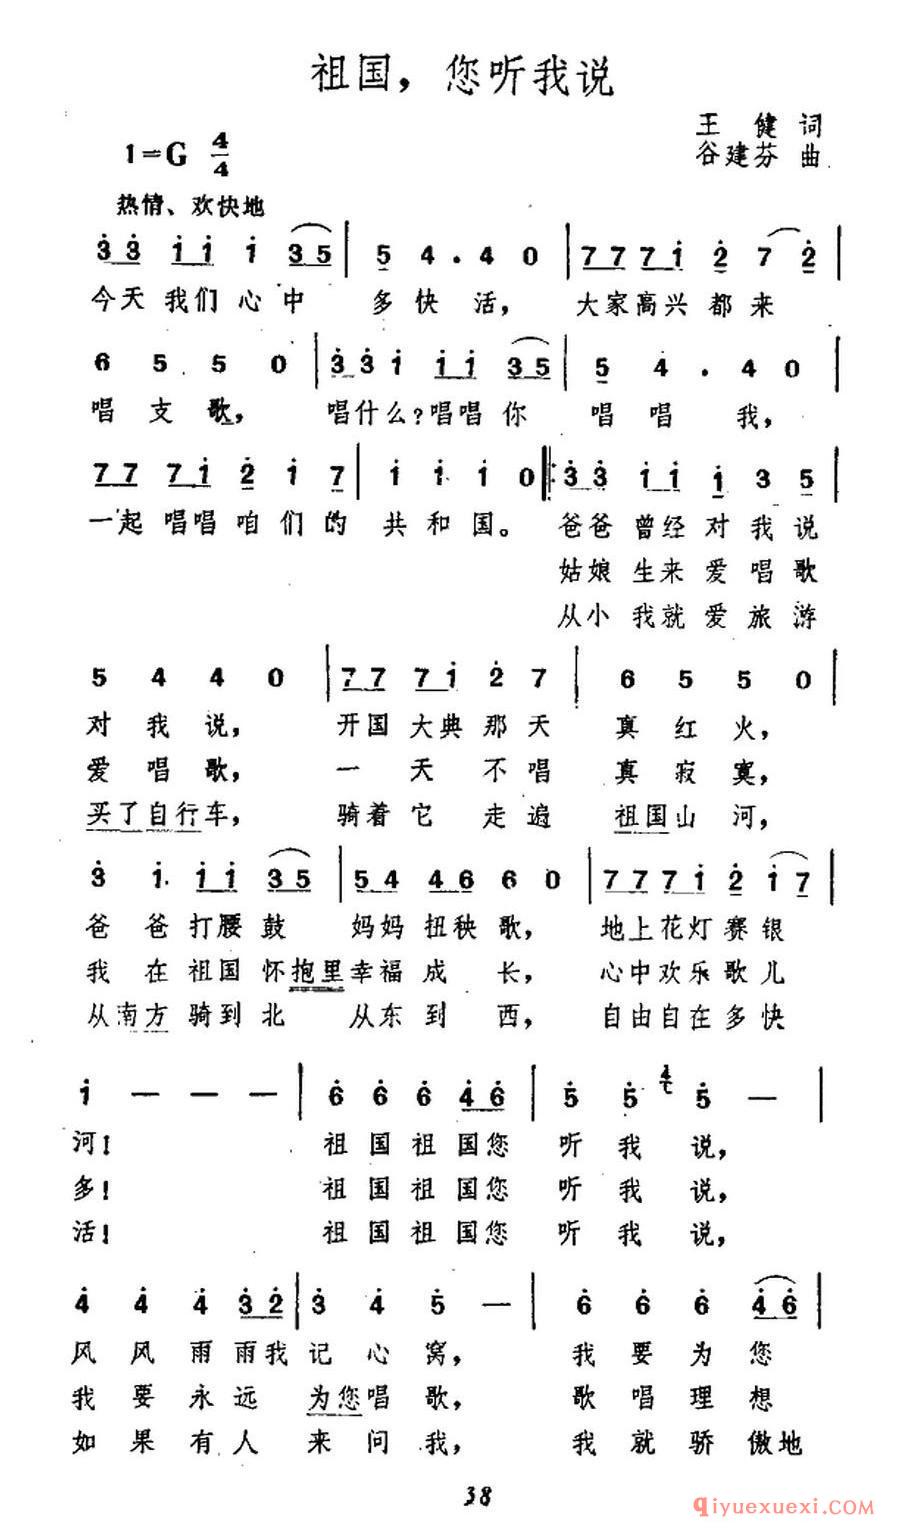 祖国，您听我说
王健词
1=G 4/4
谷建芬曲
热情、欢快地
3 3 1 1 1 3 5 | 5 4 . 4 0 | 7 7 7 1 2 7 2 |
今天我们心中 多快活， 大家高兴都来
6 5 5 0 | 3 3 1 1 1 3 5 | 5 4 . 4 0 |
唱支歌， 唱什么？唱唱你 唱唱我，
7 7 7 1 2 1 7 | 1 1 1 0 |: 3 3 1 1 1 3 5 |
一起唱唱咱们的 共和国。 爸爸曾经对我说
姑娘生来爱唱歌
从小我就爱旅游
5 4 4 0 | 7 7 7 1 2 7 | 6 5 5 0 |
对我说， 开国大典那天 真红火，
爱唱歌， 一天不唱 真寂寞，
买了自行车， 骑着它走遍 祖国山河，
3 1 1 1 3 5 | 5 4 4 6 6 0 | 7 7 7 1 2 1 7 |
爸爸打腰鼓 妈妈扭秧歌， 地上花灯赛银
我在祖国怀抱里幸福成长， 心中欢乐歌儿
从南方骑到北 从东到西， 自由自在多快
1 — — — | 6 6 6 4 6 | 5 5 4 5 — |
河！ 祖国祖国您 听我说，
多！ 祖国祖国您 听我说，
活！ 祖国祖国您 听我说，
4 4 4 3 2 | 3 4 5 — | 6 6 6 4 6 |
风风雨雨我记心窝， 我要为您
我要永远 为您唱歌， 歌唱理想
如果有人 来问我， 我就骄傲地
38
qiyuexuexi.com